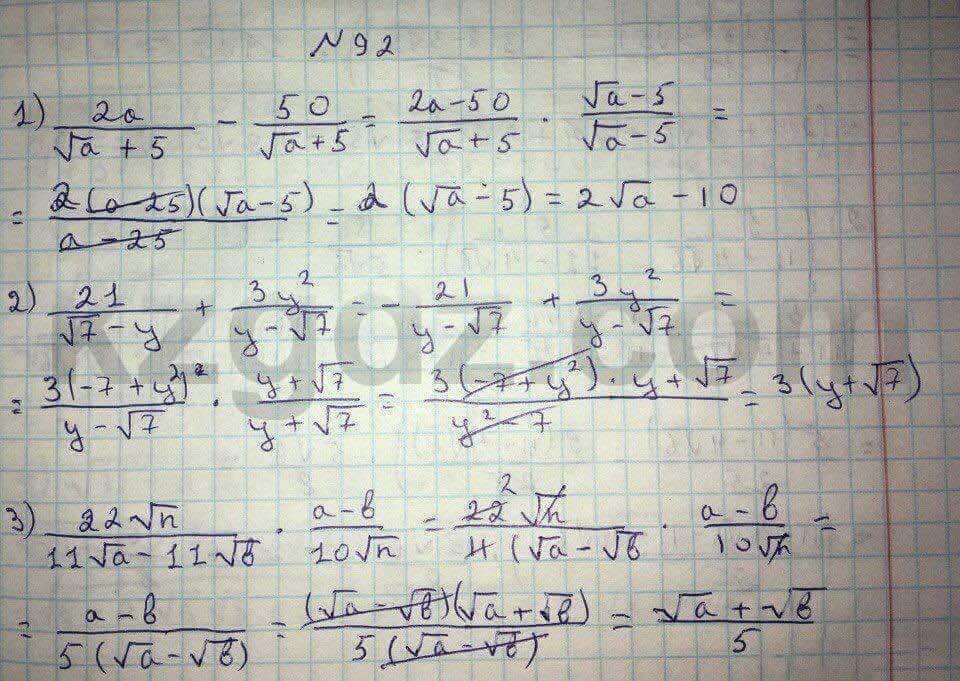 N 92
1) 2a/(√a + 5) - 50/(√a + 5) = (2a - 50)/(√a + 5) · (√a - 5)/(√a - 5) =
= 2(a - 25)(√a - 5)/(a - 25) = 2(√a - 5) = 2√a - 10
2) 21/(√7 - y) + 3y²/(y - √7) = - 21/(y - √7) + 3y²/(y - √7) =
= 3(-7 + y²)/(y - √7) · (y + √7)/(y + √7) = 3(-7 + y²) · y + √7/(y² - 7) = 3(y + √7)
kzgdz.com
3) 22√n/(11√a - 11√b) · (a - b)/(10√n) = 22 2 √n/(11(√a - √b) · (a - b)/(10√n) =
= (a - b)/(5(√a - √b)) = (√a - √b)(√a + √b)/(5(√a - √b)) = (√a + √b)/5